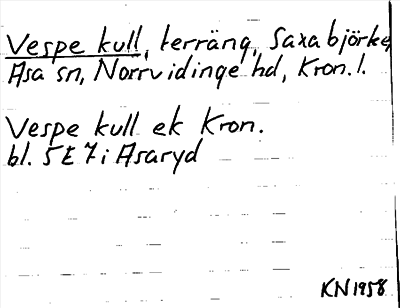 Vespe kull, terräng, Saxabjörke,
Asa sn, Norrvidinge hd, Kron. l.
Vespe kull ek Kron.
bl. 5E7i Asaryd
KN 1958